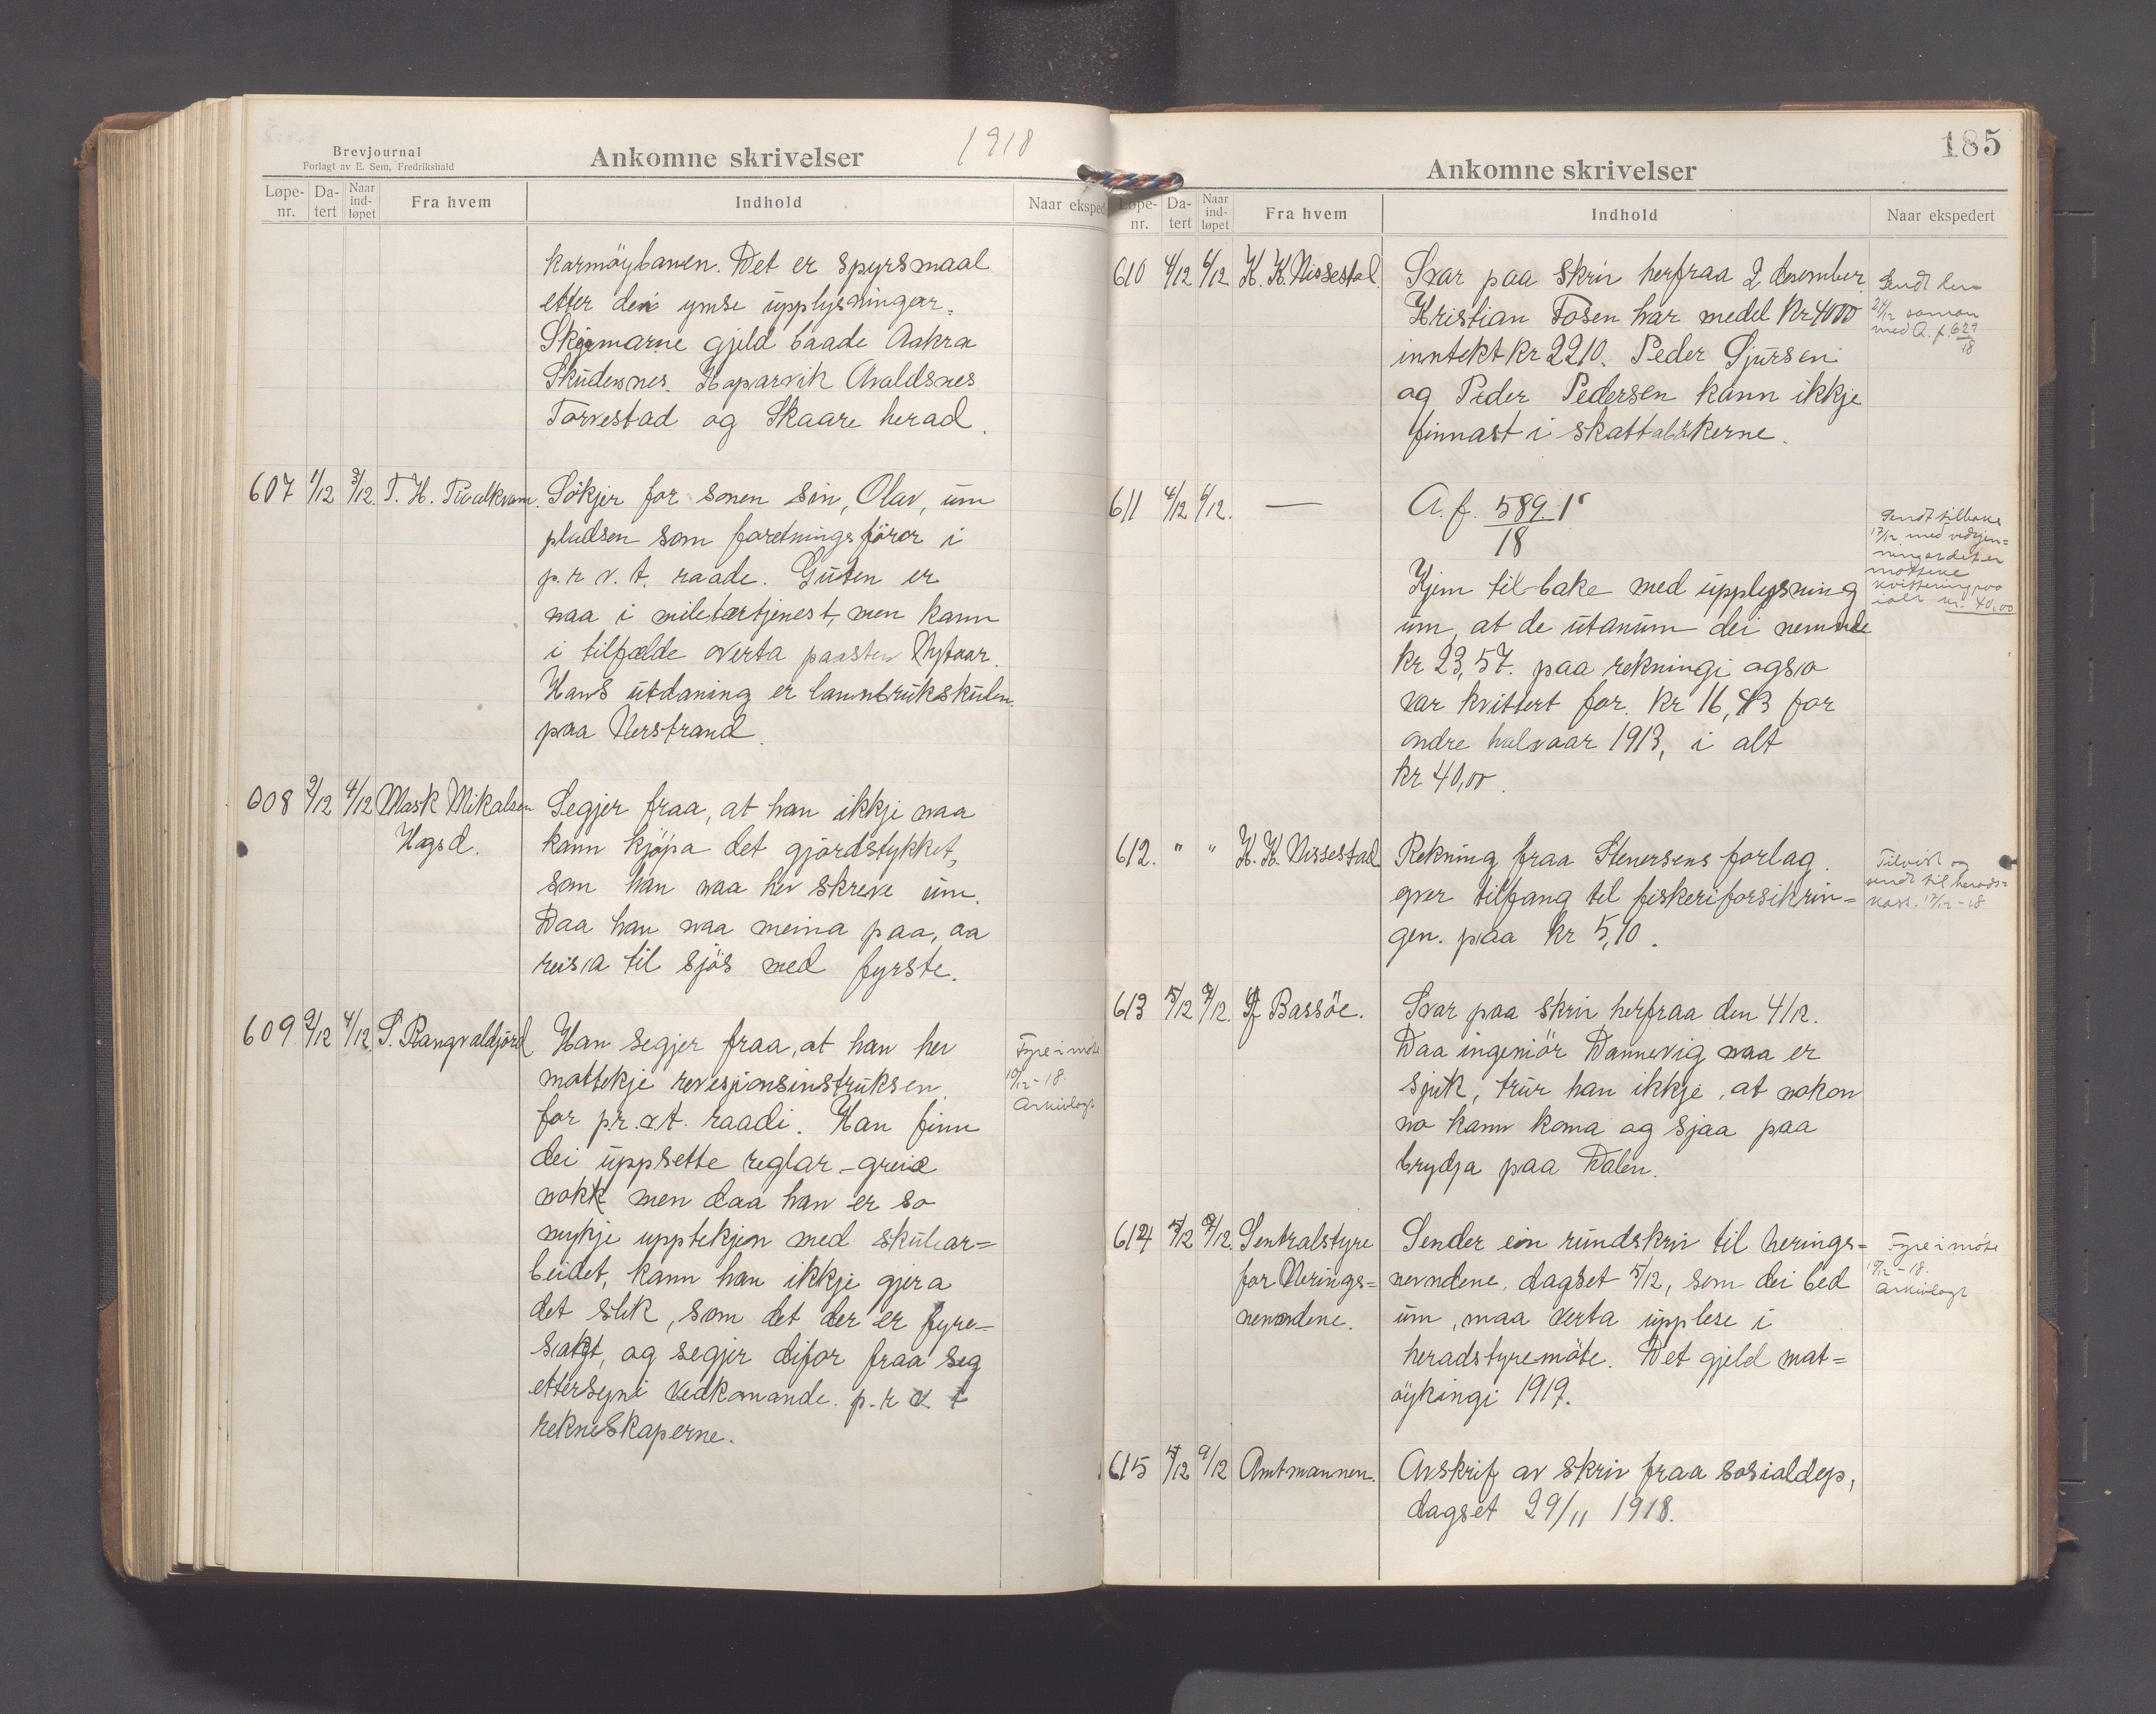 Brevjournal
Forlagt av E. Sem, Fredrikshald
Ankomne skrivelser
1918
Løpe-nr. Da-tert Naar ind-løpet Fra hvem Indhold Naar eksped
karmöybanen. Det er spyrsmaal
etter dei ymse upplysningar.
Skjemarne gjeld baade Aakra
Skudesnes. Koparvik Avaldsnes
Torvestad og Skaare herad.
607 1/12 3/12 T. H. Sökjer for sonen sin, Olav, um
pladsen som foretningsförer i
p. r. v. t. raade. Guten er
naa i miletærtjenest, men kann
i tilfælde overta paasten Nytaar.
Hans utdaning er lannbrukskulen
paa Nerstrand.
608 2/12 4/12 Mask Mikalsen Segjer fraa, at han ikkje naa
Hagsd. kann kjöpa det gjördstykket,
som han naa hev skreve um.
Daa han naa meina paa, aa
reisa til sjös med fyrste.
609 2/12 4/12 S. Rangvaldjörd Han segjer fraa, at han hev
mottekje revesjonsinstruksen
for p.r.v.t. raadi. Han finn
dei uppsette reglar greid
nokk men daa han er so
mykje upptekjen med skular=
beidet, kann han ikkje gjera
det slik, som det der er fyre-
satgt, og segjer difor fraa seg
ettersyni vedkomande p. r v t
rekneskaperne.
Fyre i møte
10/12 - 18.
Arkivlagt
185
Ankomne skrivelser
Løpe-nr. Da-tert Naar ind-løpet Fra hvem Indhold Naar ekspedert
610 4/12 6/12 K. K. Nissestad. Svar paa skriv herfraa 2 desember
Kristian Fosen har medel Kr 4000
inntekt kr 2210. Peder Sjursen
og Peder Pedersen kann ikkje
finnast i skattabökerne.
Sendt
24/12 saman
med A. f. 629
18
611 4/12 6/12. — A. f. 589. 1
18
Kjem til-bake med upplysning
um, at de utanum dei nemnde
kr 23,57. paa rekningi ogso
var kvittert for. kr 16,43 for
andre halvaar 1913, i alt
kr 40,00.
Sendt tilbake
17/12 med vedgjen=
ning at det er
mottene
kvittering paa
ialt kr. 40,00
612. " " K. K. Nissestad Rekning fraa Stenersens forlag
yver tilfang til fiskeriforsikrin=
gen. paa kr 5,10.
Tilvist og
sendt til herads=
kass. 17/12 - 18
613 5/12 7/12. Bassöe. Svar paa skriv herfraa den 4/12.
Daa ingeniör Dannevig naa er
sjuk, trur han ikkje, at nokon
no kann koma og sjaa paa
brydja paa Dalen.
614 5/12 7/12. Sentralstyre Sender ein rundskriv til herings=
for Nerings= nevndene, dagset 5/12, som dei bed
nemndene. um, maa verta upplese i
heradstyremöte. Det gjeld mat=
öykingi 1919.
Fyre i møte
10/12 - 18.
Arkivlagt
615 7/12 9/12 Amtmannen. Avskrif av skriv fraa sosialdep,
dagset 29/11 1918.